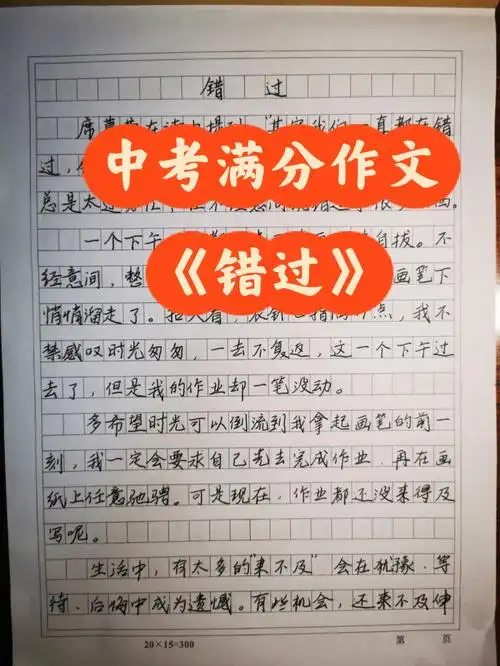 错过
席慕蓉在诗
真都在错
过，
中考满分作文
总是太
画。
一个下午
自拔。不
《错过》
经意间，整
画笔下
悄悄溜走了。
点，我不
禁感叹时光匆匆，一去不复返，这一个下午过
去了，但是我的作业却一笔没动。
多希望时光可以倒流到我拿起画笔的前一
刻，我一定会要求自己先去完成作业，再在画
纸上任意驰骋。可是现在，作业都还没来得及
写呢。
生活中，有太多的“来不及”会在犹豫、等
待、后悔中成为遗憾。有些机会，还来不及伸
20×15=300 第 页